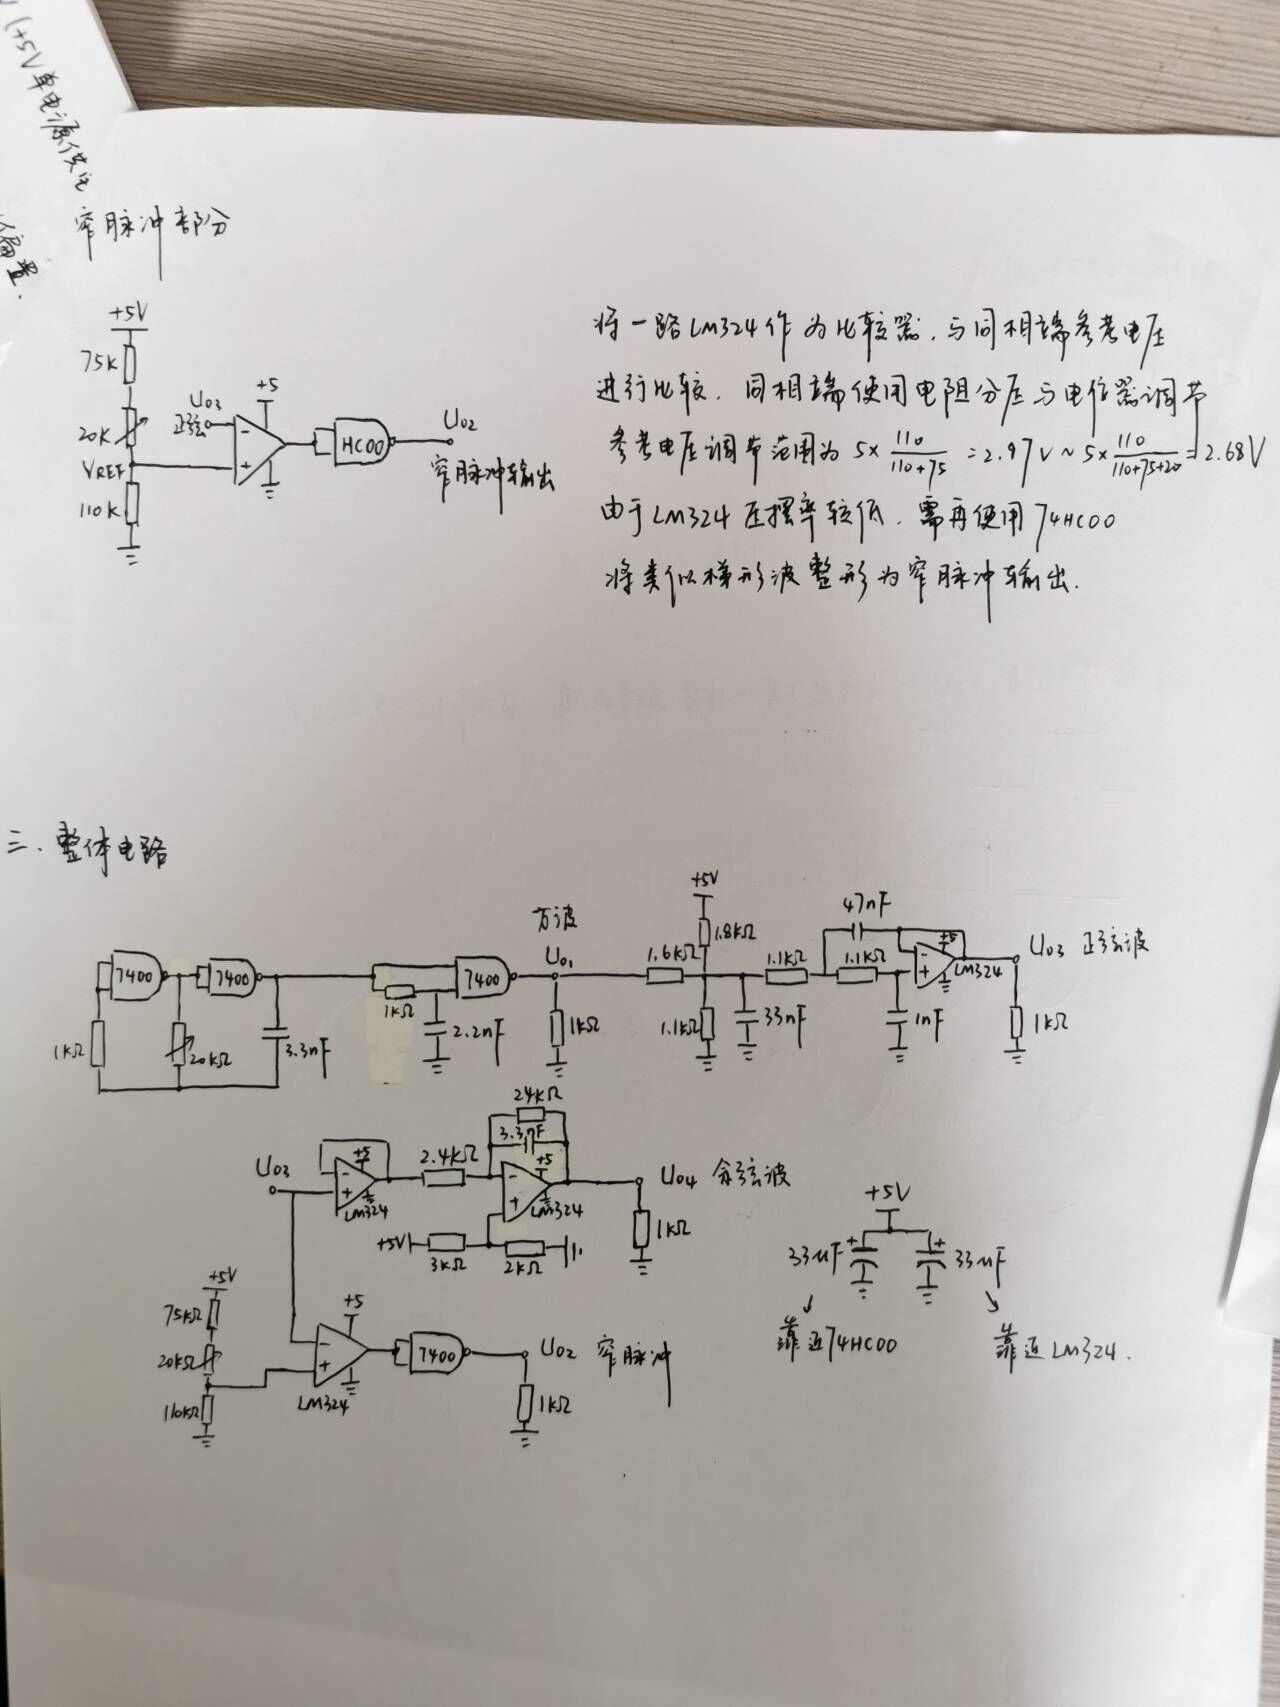 (+5V单电源供电
偏置.
窄脉冲部分
+5V
75K
20K
VREF
110K
Uo3
正弦
+5
-
+
HC00
Uo2
窄脉冲输出
将一路LM324作为比较器,与同相端参考电压
进行比较.同相端使用电阻分压与电位器调节
参考电压调节范围为 5×110/(110+75)=2.97V~5×110/(110+75+20)=2.68V
由于LM324压摆率较低,需再使用74HC00
将类似梯形波整形为窄脉冲输出.
三.整体电路
7400
7400
1kΩ
20kΩ
3.3nF
1kΩ
2.2nF
7400
方波
Uo1
1kΩ
1.6kΩ
+5V
1.8kΩ
1.1kΩ
33nF
1.1kΩ
47nF
1.1kΩ
1nF
+5
-
+
LM324
Uo3 正弦波
1kΩ
Uo3
+5
-
+
LM324
2.4kΩ
24kΩ
3.3nF
+5
-
+
LM324
+5V
3kΩ
2kΩ
Uo4 余弦波
1kΩ
+5V
75kΩ
20kΩ
110kΩ
+5
-
+
LM324
7400
Uo2 窄脉冲
1kΩ
+5V
33uF
+
+
33uF
靠近74HC00
靠近LM324.